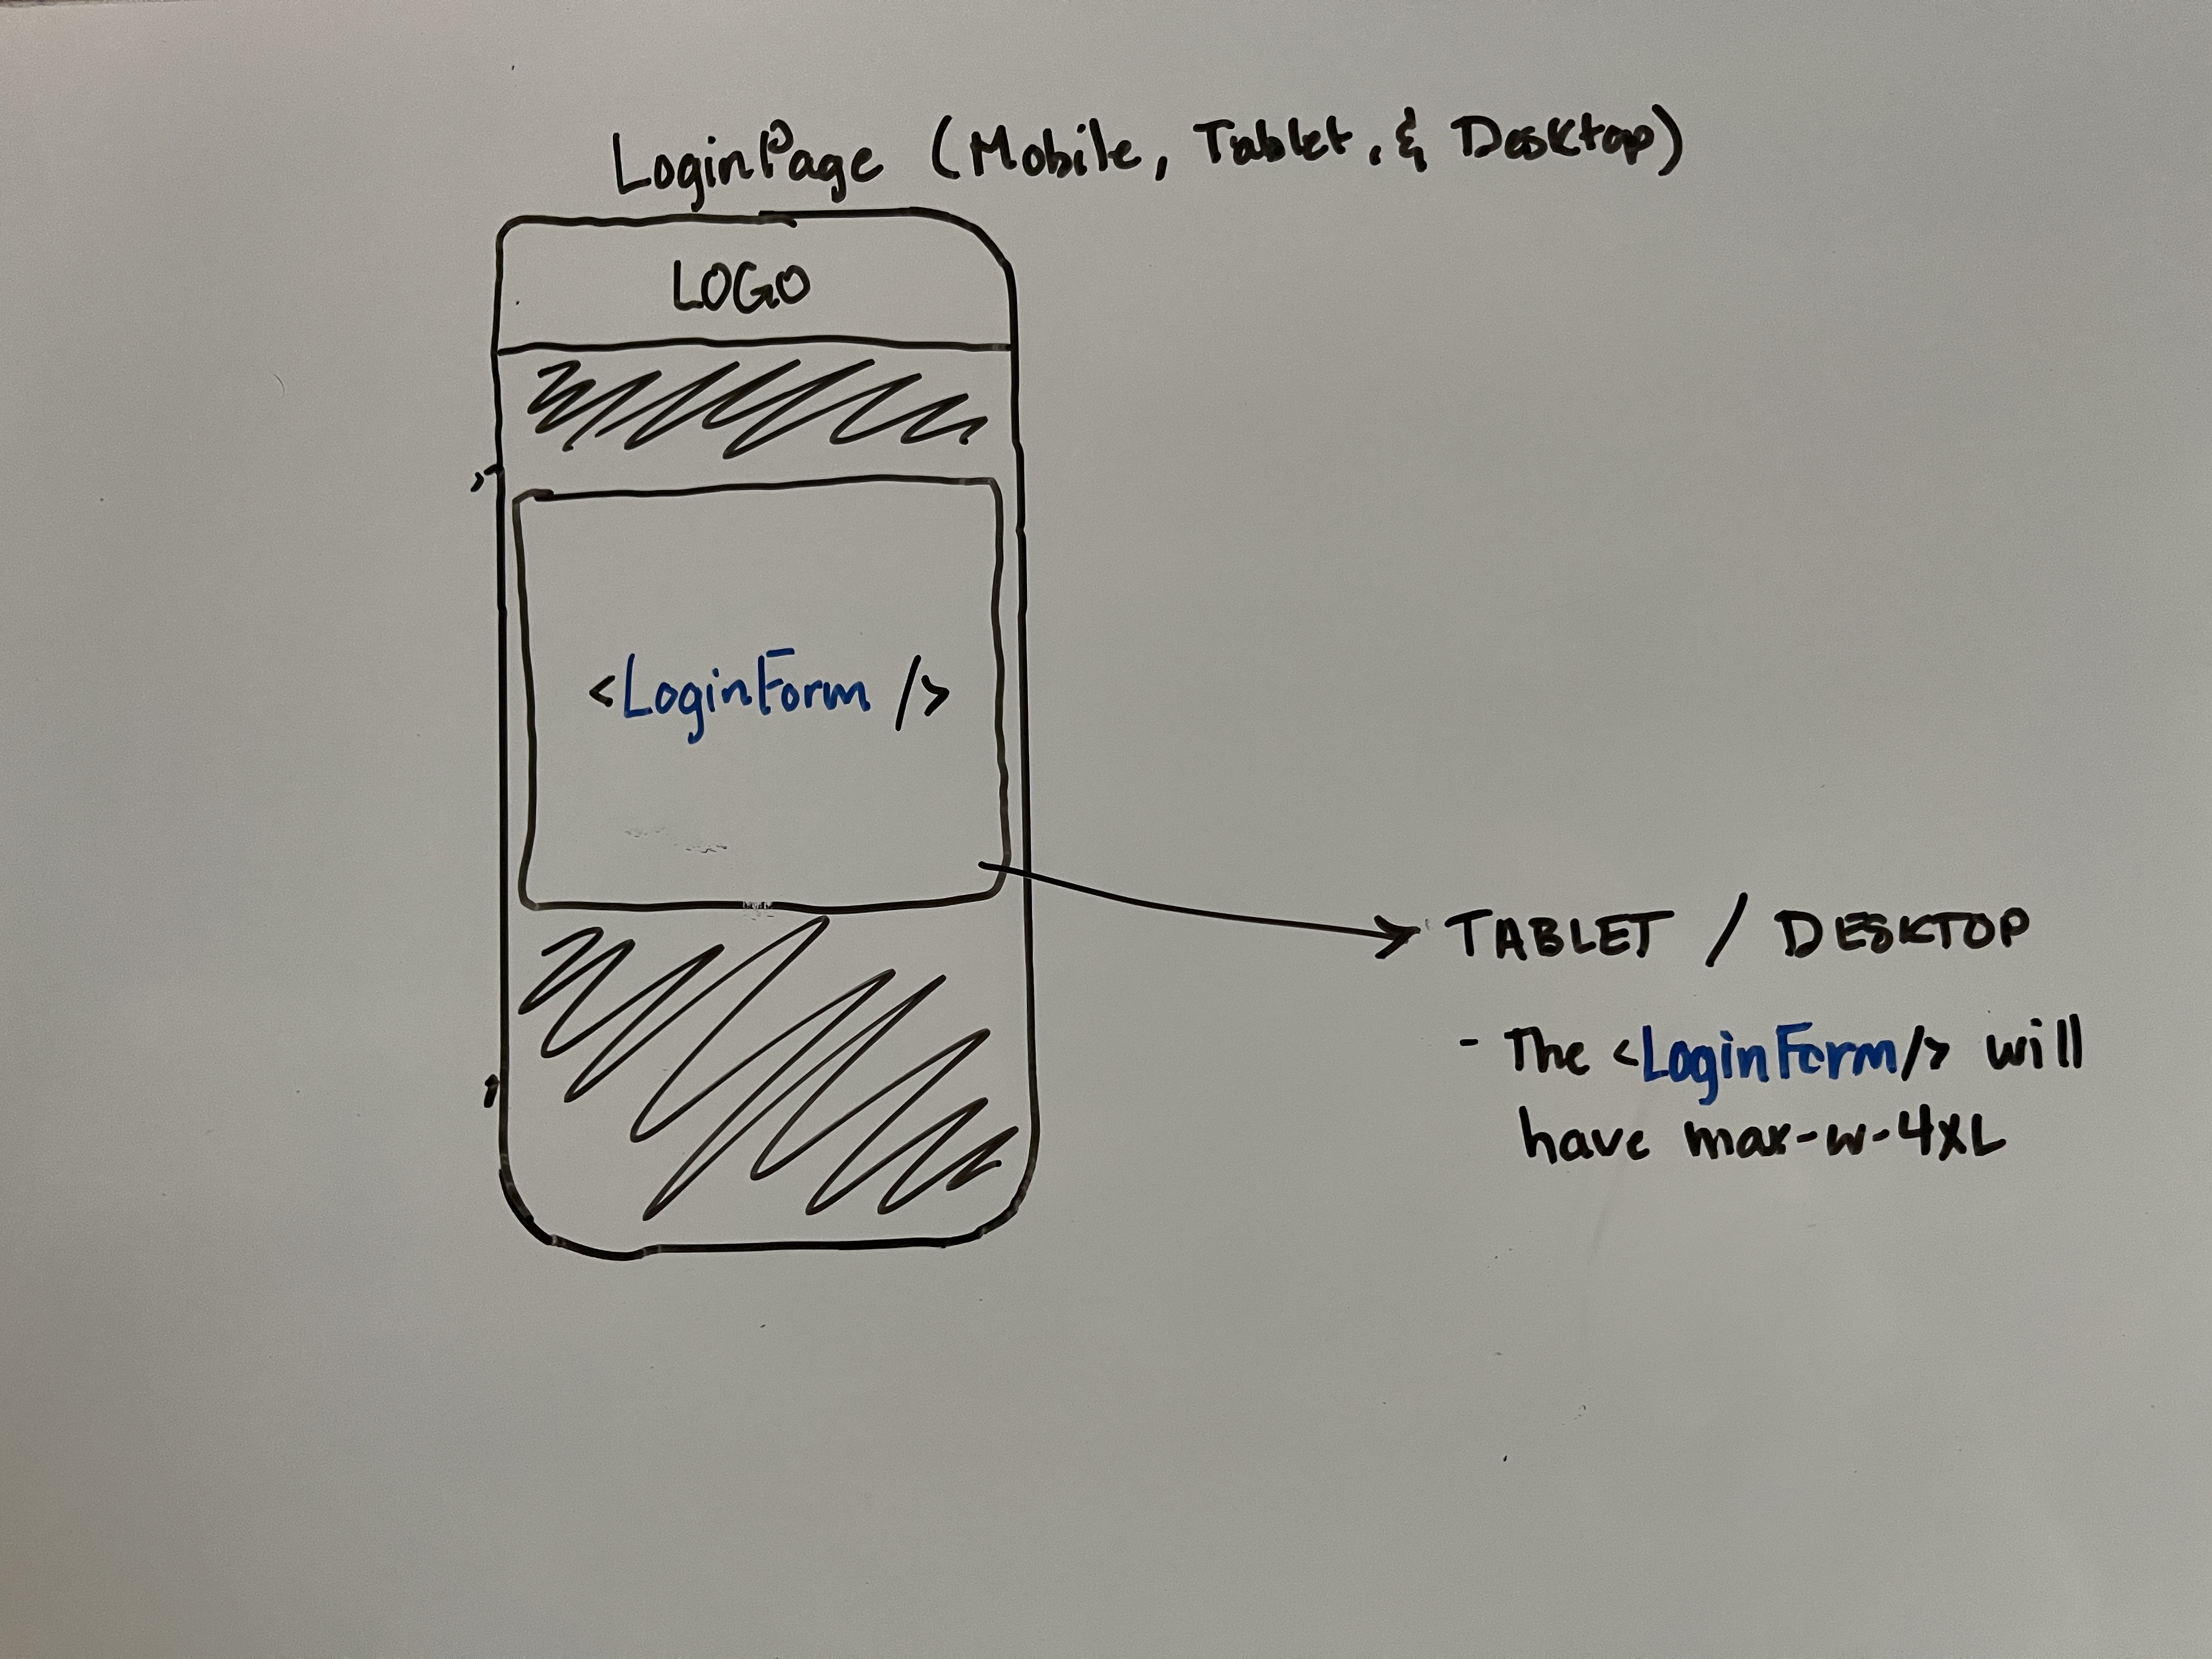 LoginPage (Mobile, Tablet, & Desktop)
LOGO
<LoginForm />
TABLET / DESKTOP
- The <LoginForm/> will
have max-w-4XL